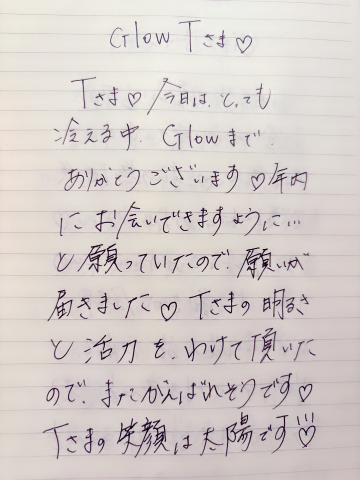 Glow Tさま♡
Tさま♡今日は、とっても
冷える中、Glowまで
ありがとうございます♡年内
にお会いできますように…
と願っていたので、願いが
届きました♡Tさまの明るさ
と活力を、わけて頂いた
ので、またがんばれそうです♡
Tさまの笑顔は太陽です!!♡